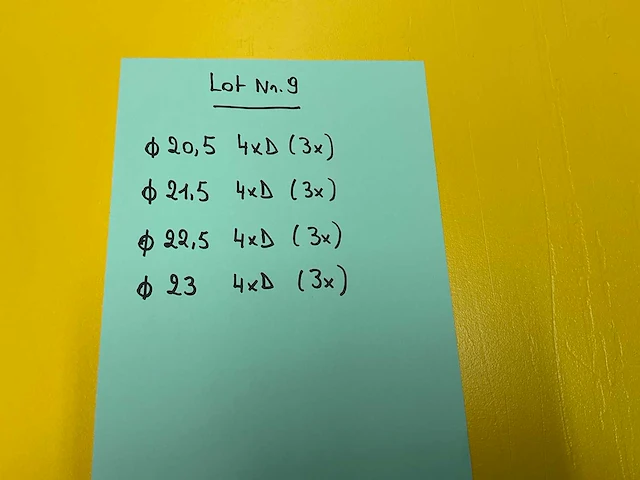 Lot Nr. 9
ϕ 20,5 4xD (3x)
ϕ 21,5 4xD (3x)
ϕ 22,5 4xD (3x)
ϕ 23 4xD (3x)